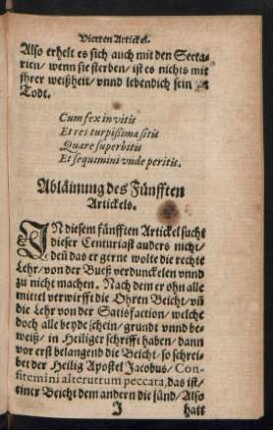 Vierten Artickel.
Also erhelt es sich auch mit den Secta-
rien / wenn sie sterben / ist es nichts mit
jhrer weißheit / vnnd lebendich sein
Todt.
Cum fex in vitis
Et res turpißima sitis
Quare superbitis
Et sequimini vnde peritis.
Abläinung des Fünfften
Artickels.
IN diesem fünfften Artickel sucht
dieser Centuriast anders nicht /
deñ das er gerne wolte die rechte
Lehr / von der Bueß verdunckelen vnnd
zu nicht machen. Nach dem er ohn alle
mittel verwirfft die Ohren Beicht / vñ
die Lehr von der Satisfaction / welche
doch alle beyde schein / grundt vnnd be-
weiß / in Heiliger schrifft haben / dann
vor erst belangend die Beicht / so schrei-
bet der Heilig Apostel Jacobus / Con-
fitemini alterutrum peccata, das ist /
einer Beicht dem andern die sünd / Also
J hatt